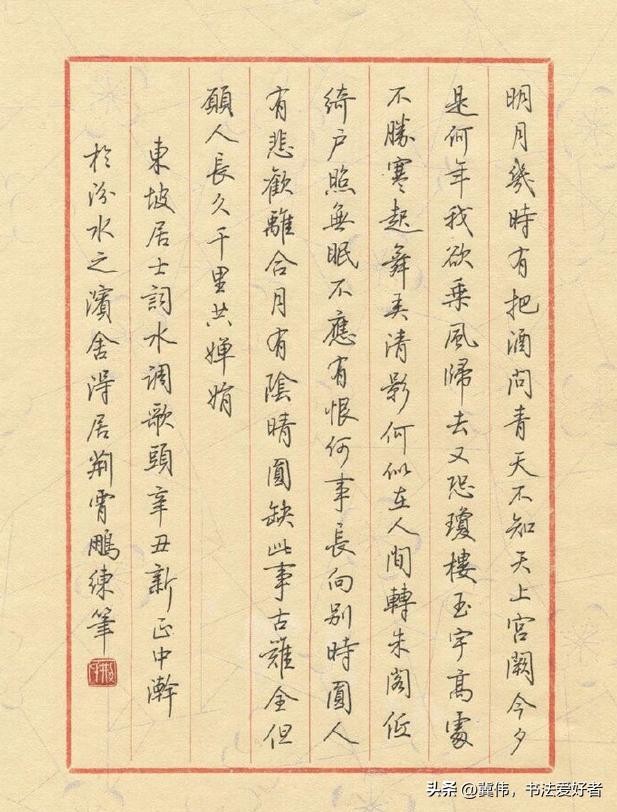 明月幾時有把酒問青天不知天上宮闕今夕
是何年我欲乗風歸去又恐瓊樓玉宇高處
不勝寒起舞弄清影何似在人間轉朱閣低
綺户照無眠不應有恨何事長向别時圓人
有悲歡離合月有陰晴圓缺此事古難全但
願人長久千里共嬋娟
東坡居士詞水調歌頭辛丑新正中澣
於汾水之濱舍得居荊霄鵬練筆
头条 @冀伟，书法爱好者